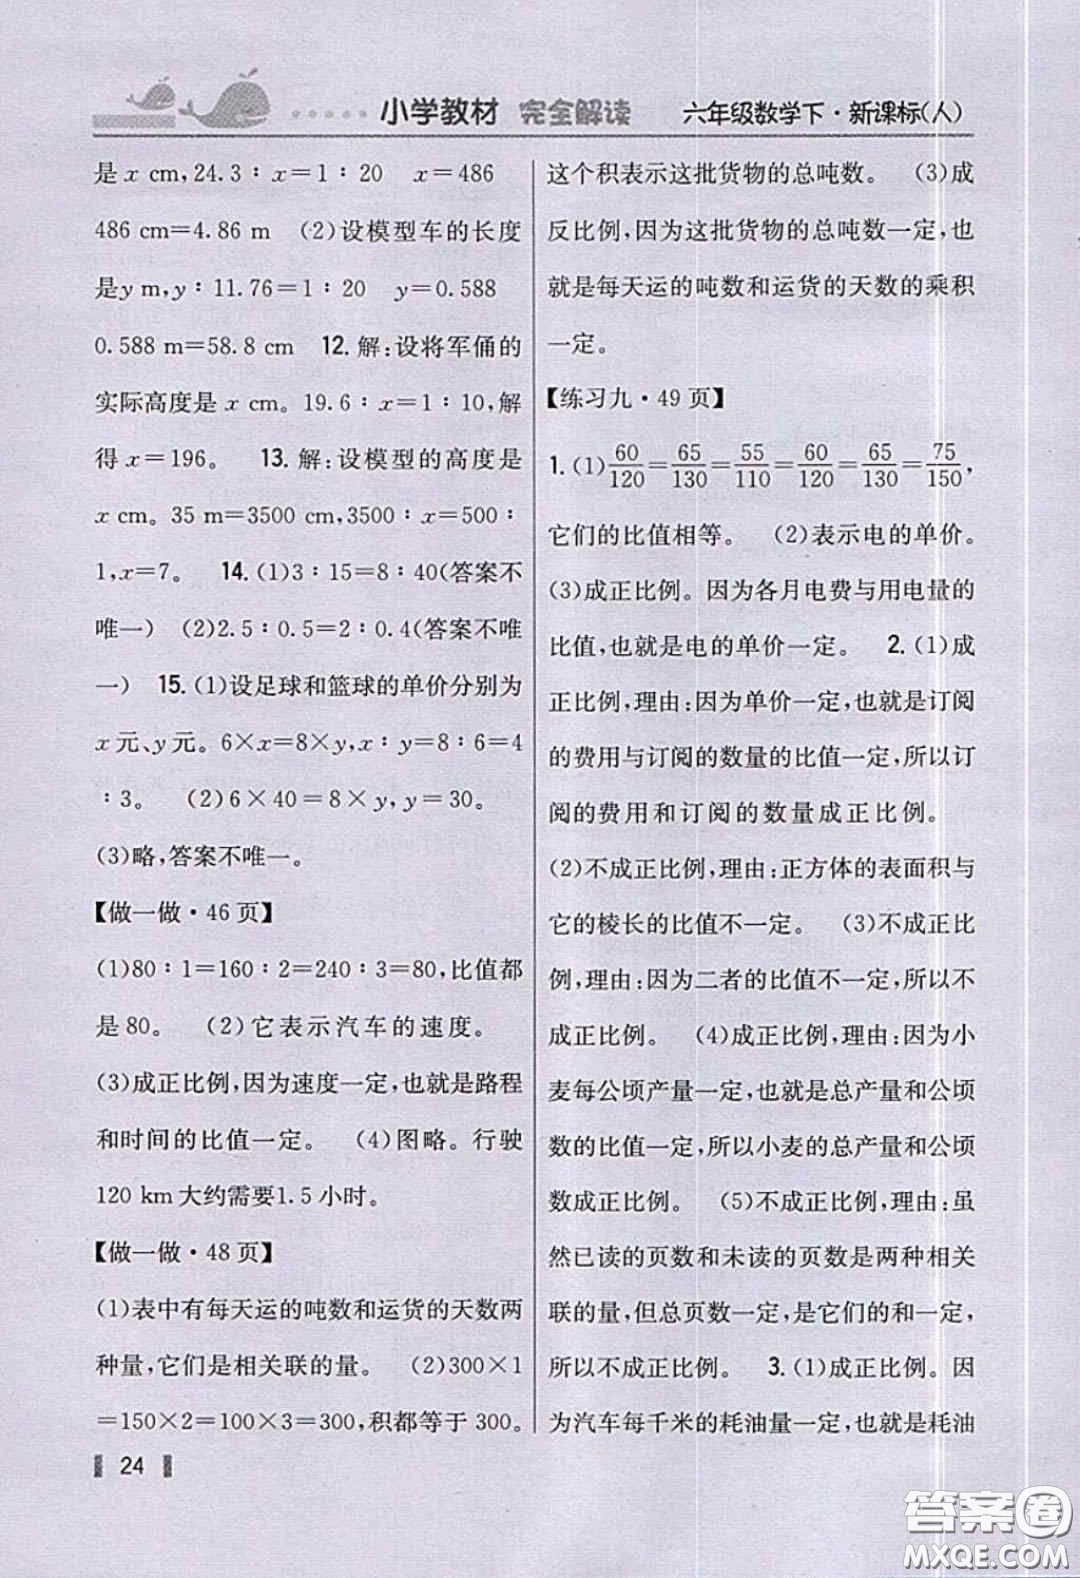 小学教材 完全解读 六年级数学下·新课标(人)
是 x cm,24.3∶x=1∶20 x=486
486 cm=4.86 m (2)设模型车的长度
是y m,y∶11.76=1∶20 y=0.588
0.588 m=58.8 cm 12.解:设将军俑的
实际高度是 x cm。19.6∶x=1∶10,解
得 x=196。 13.解:设模型的高度是
x cm。35 m=3500 cm,3500∶x=500∶
1,x=7。 14.(1)3∶15=8∶40(答案不
唯一) (2)2.5∶0.5=2∶0.4(答案不唯
一) 15.(1)设足球和篮球的单价分别为
x 元、y元。6×x=8×y,x∶y=8∶6=4
∶3。 (2)6×40=8×y,y=30。
(3)略,答案不唯一。
【做一做·46 页】
(1)80∶1=160∶2=240∶3=80,比值都
是 80。 (2)它表示汽车的速度。
(3)成正比例,因为速度一定,也就是路程
和时间的比值一定。 (4)图略。行驶
120 km大约需要1.5 小时。
【做一做·48 页】
(1)表中有每天运的吨数和运货的天数两
种量,它们是相关联的量。 (2)300×1
=150×2=100×3=300,积都等于 300。
这个积表示这批货物的总吨数。 (3)成
反比例,因为这批货物的总吨数一定,也
就是每天运的吨数和运货的天数的乘积
一定。
【练习九·49 页】
1.(1)60/120=65/130=55/110=60/120=65/130=75/150,
它们的比值相等。 (2)表示电的单价。
(3)成正比例。因为各月电费与用电量的
比值,也就是电的单价一定。 2.(1)成
正比例,理由:因为单价一定,也就是订阅
的费用与订阅的数量的比值一定,所以订
阅的费用和订阅的数量成正比例。
(2)不成正比例,理由:正方体的表面积与
它的棱长的比值不一定。 (3)不成正比
例,理由:因为二者的比值不一定,所以不
成正比例。 (4)成正比例,理由:因为小
麦每公顷产量一定,也就是总产量和公顷
数的比值一定,所以小麦的总产量和公顷
数成正比例。 (5)不成正比例,理由:虽
然已读的页数和未读的页数是两种相关
联的量,但总页数一定,是它们的和一定,
所以不成正比例。 3.(1)成正比例。因
为汽车每千米的耗油量一定,也就是耗油
24
答案圈
MXQE.COM